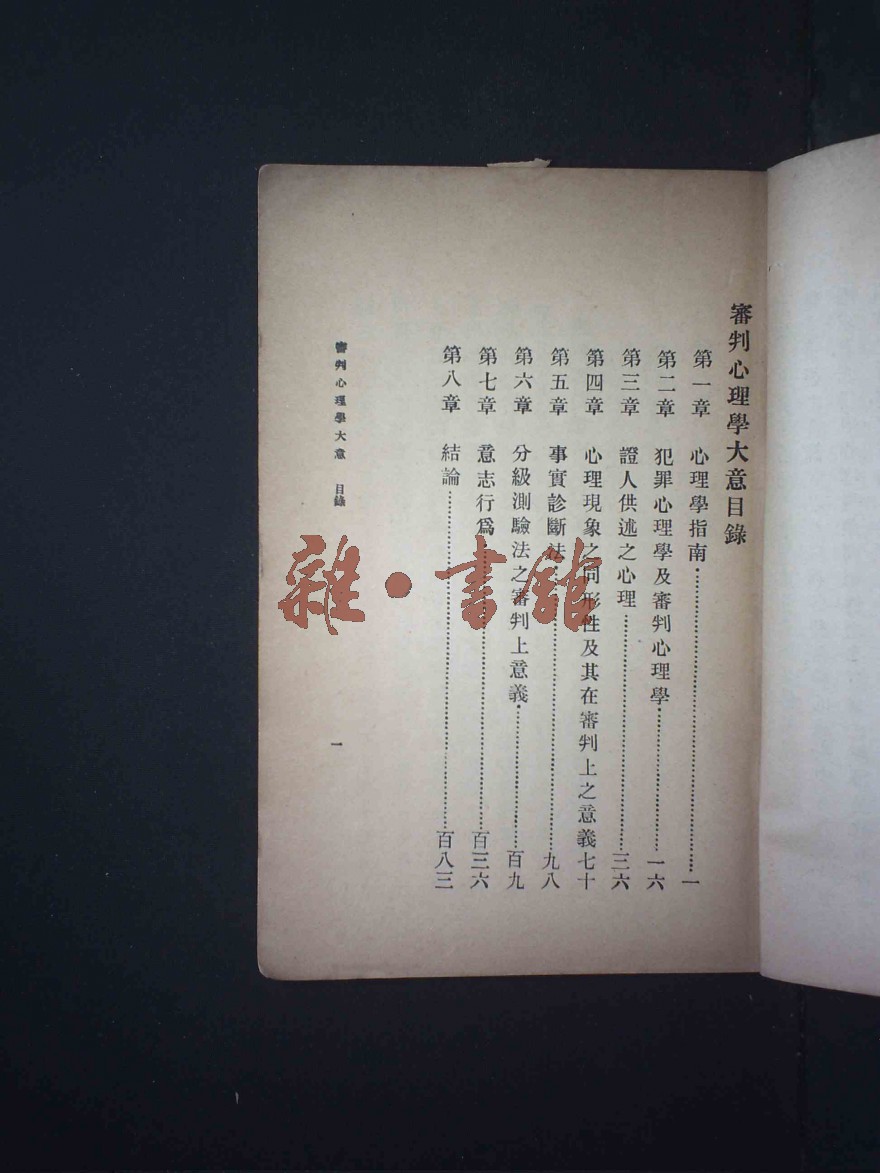 審判心理學大意目錄
第一章 心理學指南……一
第二章 犯罪心理學及審判心理學……一六
第三章 證人供述之心理……三六
第四章 心理現象之同形性及其在審判上之意義七十
第五章 事實診斷法……九八
第六章 分級測驗法之審判上意義……百九
第七章 意志行爲……百三六
第八章 結論……百八三
審判心理學大意 目錄
一
雜·書館